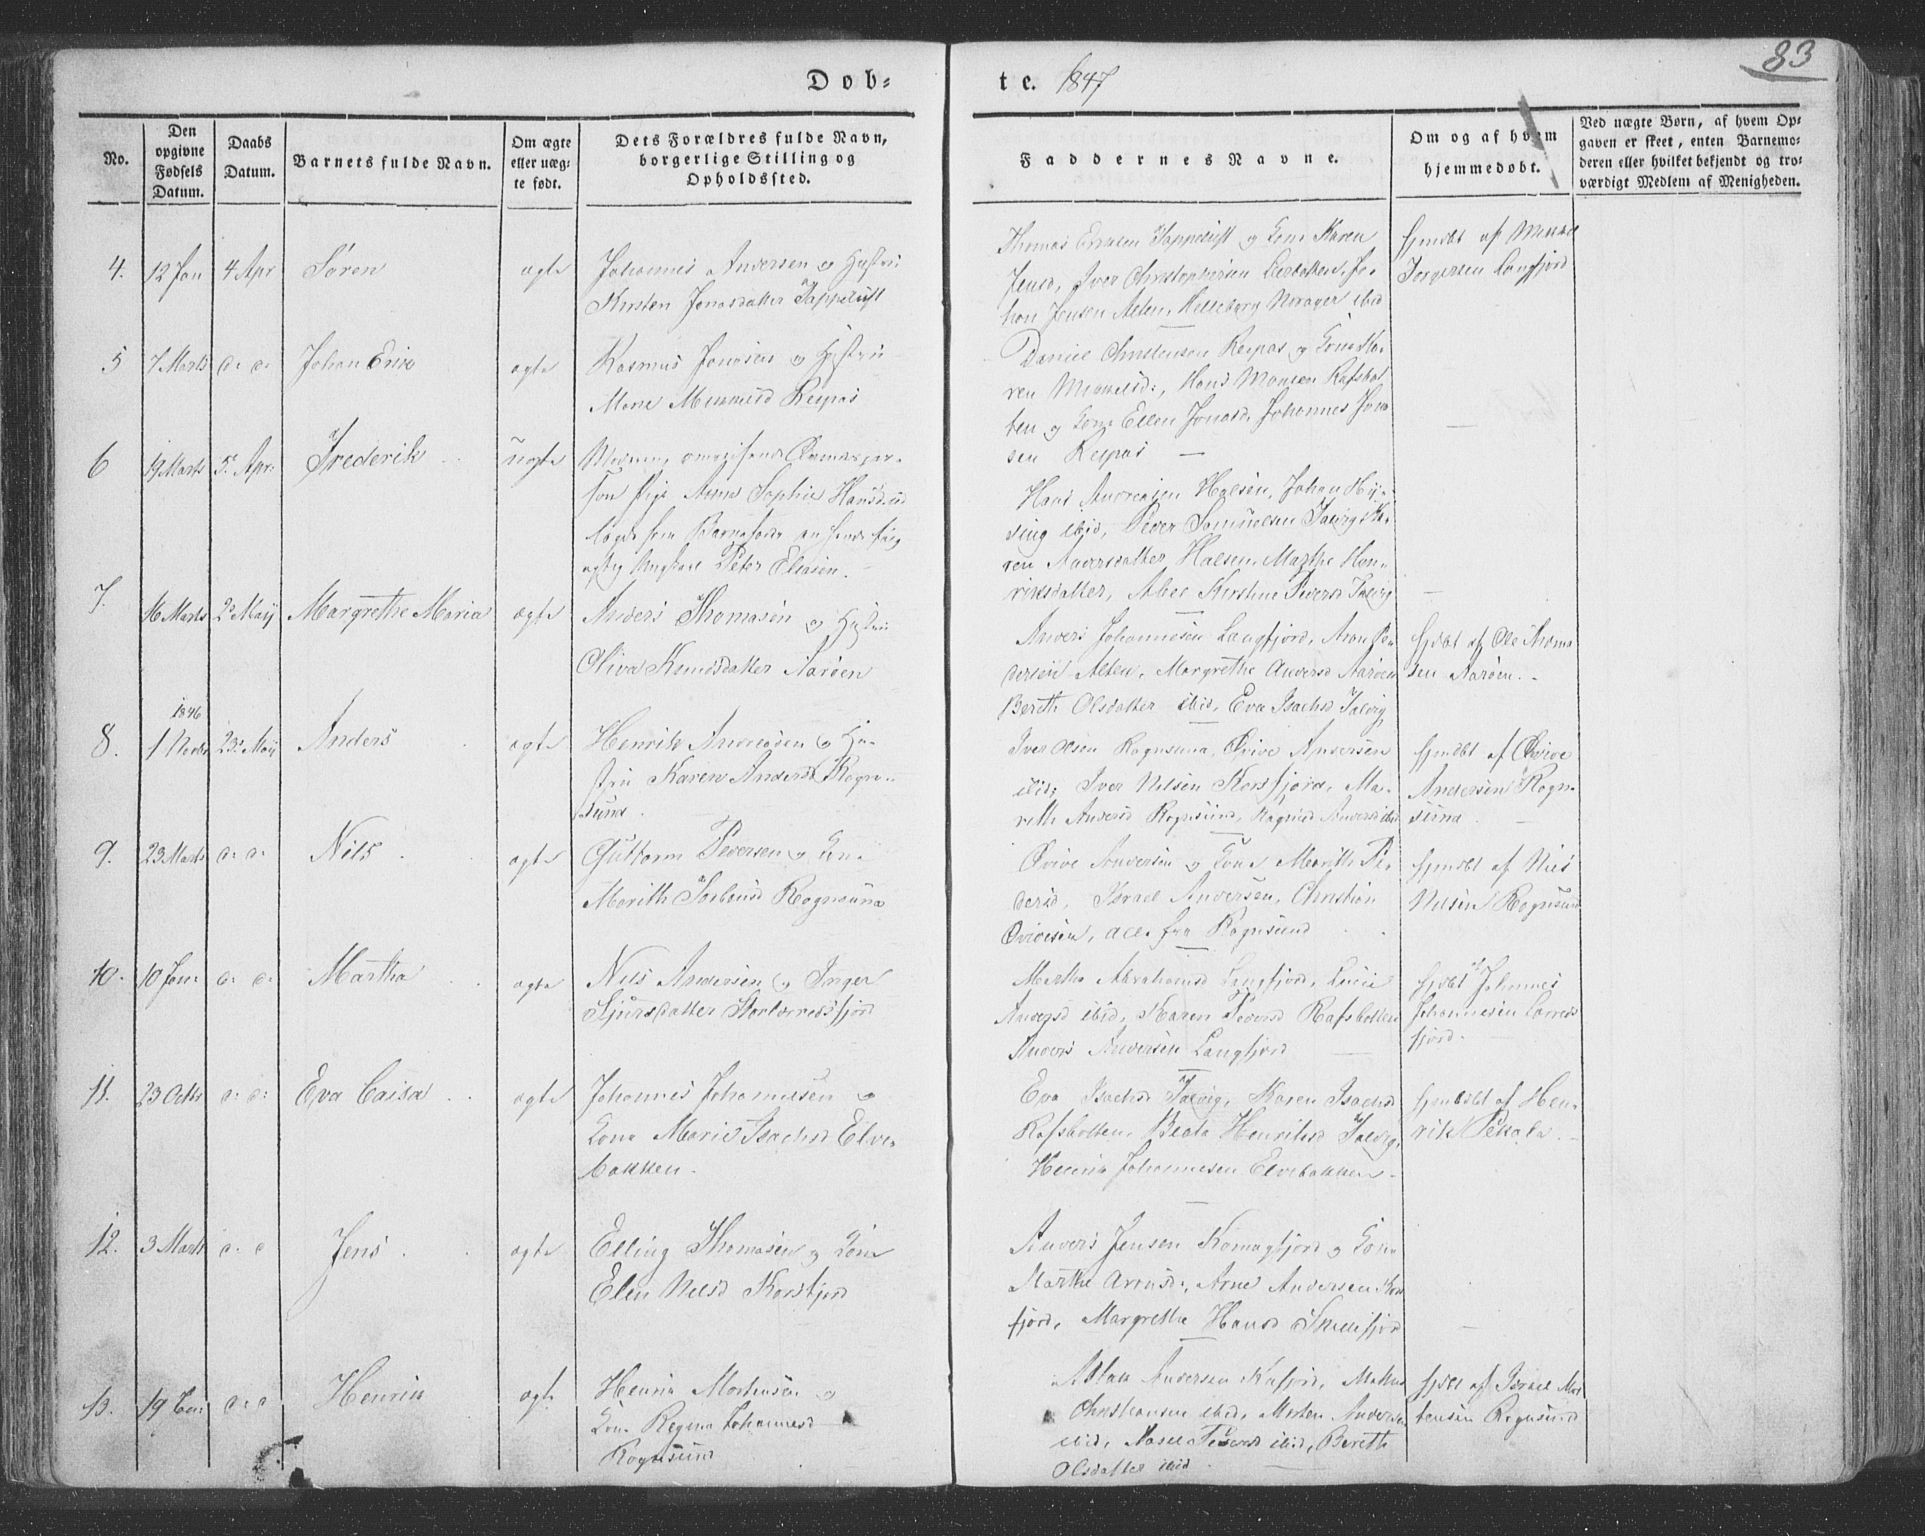 83
Dob=
te. 1847
No.
Den opgivne Fødsels Datum.
Daabs Datum.
Barnets fulde Navn.
Om ægte eller uæg-te født.
Dets Forældres fulde Navn, borgerlige Stilling og Opholdssted.
Faddernes Navne.
Om og af hvem hjemmedøbt.
Ved uægte Børn, af hvem Op-gaven er skeet, enten Barnemo-deren eller hvilket bekjendt og tro-værdigt Medlem af Menigheden.
4. 12 Jan 4 Apr Søren ægte
Johannes Andersen og Hustru
Kirsten Jonasdatter Tappeluft
Thomas Tappeluft og Kone Karen
Jensd, Iver Christophersen
Jensen Alten, ibid
hjmdbt af Mikkel
Jørgensen Langfjord
5 7 Marts d. d. Johan Erik ægte
Rasmus Jonasen og Hustru
Marie Mikkelsd Reipas
Daniel Christensen Reipas og Kone Ma-
ren Mikkelsd:, Hans Monsen Rafsbot
ten og Kone Ellen Jonasd, Johannes Jona
sen Reipas —
6 19 Marts 5. Apr: Frederik uægte
Pige Anna Sophie Hansd
som Barnefader
Ungkarl Peter Eliasen.
Hans Andreasen Halsen, Johan
ibid, Peder Samuelsen Talvig, Ka-
ren Andersdatter Halsen, Marthe Hen-
riksdatter, Kirstine Pedersd Talvig
7. 16 Marts 2d Maij Margrethe Maria ægte
Anders Thomasen og Hustru
Oliva Knudsdatter Aarøen
Anders Johannesen Langfjord, Aron Pe-
dersen Alten, Margrethe Andersd Aarøen
Bereth Olsdatter ibid, Eva Isachsd Talvig
hjdbt af Ole Thoma
sen Aarøen.
1846
8. 1 Novbr 23. Maij Anders ægte
Henrik Andreasen og Hu-
stru Karen Andersd Rogn-
sund.
Iver Olsen Rognsund, Qvive Andersen
ibid, Iver Nilsen Korsfjord, Ma-
reth Andersd Rognsund, Ragnild Andersd ibid
hjmdbt af Qvive
Andersen Rogn-
sund.
9. 23 Marts d. d. Nils ægte
Guttorm Pedersen og Kone
Marith Rognsund
Qvive Andersen og Kone Marith Pe-
dersd, Israel Andersen, Christian
Qvivesen, alle fra Rognsund
hjmdbt af Nils
Nilsen Rognsund
10. 10 Jan d. d. Martha ægte
Nils Andersen og Inger
Sjursdatter
Martha Abrahamsd Langfjord, Lucie
Andersd ibid, Karen Pedersd Rafsbotten
Anders Andersen Langfjord
hjdbt af Johannes
Johannesen
fjord.
11. 23 Octbr d. d. Eva Caisa ægte
Johannes Johannesen og
Kone Marie Isachsd Elve-
bakken.
Eva Isachsd Talvig, Karen Isachsd
Rafsbotten, Beata Henriksd Talvig,
Henrik Johannesen Elvebakken.
hjmdbt af Hen-
rik Pekala.
12. 3 Marts d. d Jens ægte
Elling Thomasen og Kone
Elen Nilsd Korsfjord
Anders Jensen Komagfjord og Kone
Marthe, Arne Andersen Kors
fjord, Margrethe Hansd
13. 19 Jan: d. d Henrik ægte
Henrik Mortensen og
Kone Regina Johannesd
Rognsund
Aslak Andersen Kafjord, Mathis
Christiansen ibid, Morten Andersen
ibid, Pedersd ibid, Bereth
Olsdatter ibid.
hjdbt af Israel Mor
tensen Rognsund